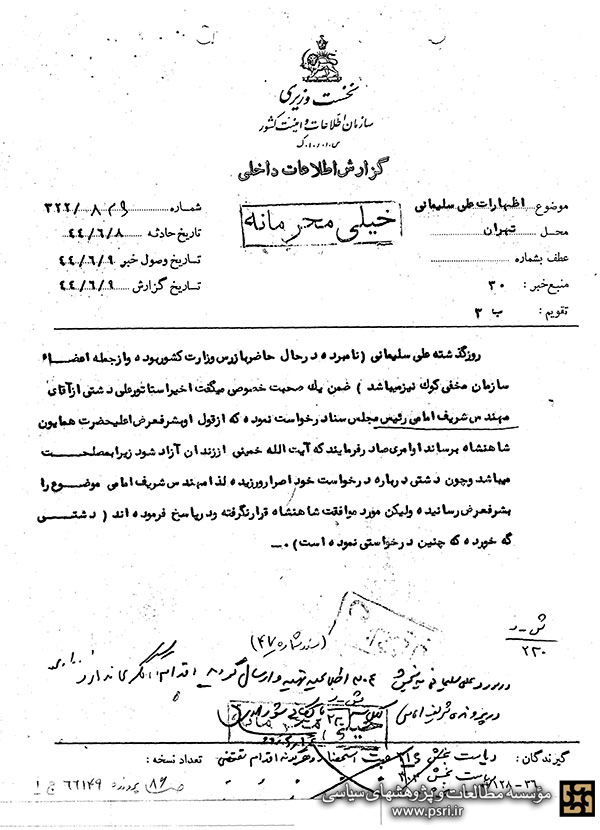 نخست وزیری
سازمان اطلاعات و امنیت کشور
س.ا.و.ا.ک
گزارش اطلاعات داخلی
موضوع اظهارات علی سلیمانی
محل تهران
عطف بشماره
منبع خبر : ۳۰
تقویم : ب ۳
خیلی محرمانه
شماره ۳۲۲/۸۵۹
تاریخ حادثه ۴۴/۶/۸
تاریخ وصول خبر ۴۴/۶/۹
تاریخ گزارش ۴۴/۶/۹
روز گذشته علی سلیمانی (نامبرده در حال حاضر بازرس وزارت کشور بوده و از جمله اعضاء
سازمان مخفی کوک نیز میباشد) ضمن یک صحبت خصوصی میگفت اخیرا سناتور علی دشتی از آقای
مهندس شریف امامی رئیس مجلس سنا درخواست نموده که از قول او بشرفعرض اعلیحضرت همایون
شاهنشاه برساند اوامری صادر فرمایند که آیت الله خمینی از زندان آزاد شود زیرا بمصلحت
میباشد و چون دشتی درباره درخواست خود اصرار ورزیده لذا مهندس شریف امامی موضوع را
بشرفعرض رسانیده ولیکن مورد موافقت شاهنشاه قرار نگرفته و در پاسخ فرموده اند (دشتی
گه خورده که چنین درخواستی نموده است) .ـ
ش-ر
۲۳۰
(سند شماره ۴۷)
در مورد علی سلیمانی به بخش ۳۰۴ اطلاعیه تهیه و ارسال گردید اقدام دیگری ندارد
در پرونده شریف امامی
خیلی محرمانه
گیرندگان : ریاست بخش ۳۱۶ جهت استحضار و هرگونه اقدام مقتضی
تعداد نسخه :
ریاست بخش
۳۶-۲۸
۸۶ پرونده ۶۶۱۴۹ ج ۱
مؤسسه مطالعات و پژوهشهای سیاسی
www.psri.ir